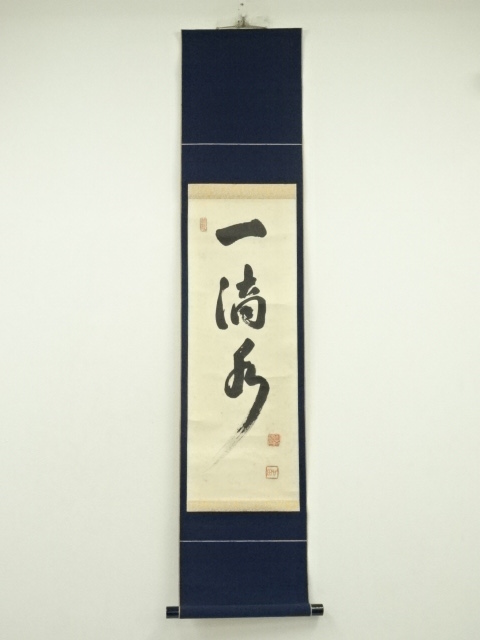 一滴水